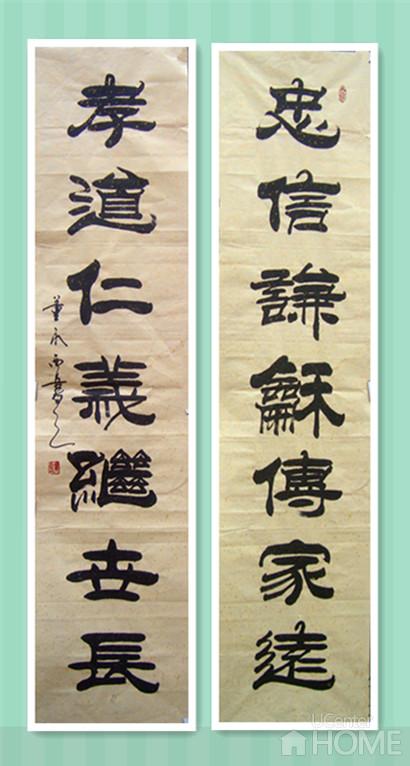 忠信謙龢傳家遠
孝道仁義繼世長
UCenter
HOME